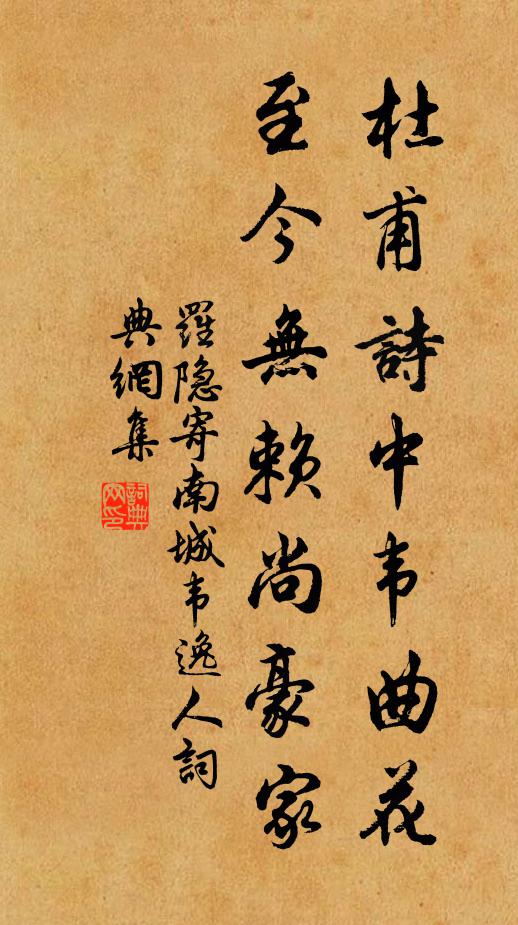 杜甫詩中韦曲花
至今無赖尚豪家
羅隐寄南城韦逸人詞
典網集
詞典
网印